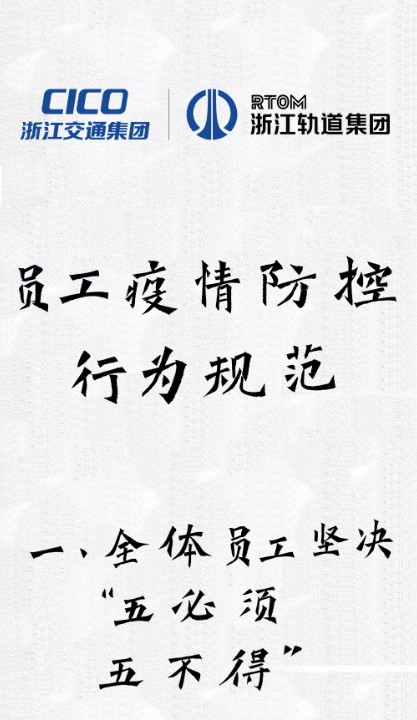 CICO
浙江交通集团
RTOM
浙江轨道集团
员工疫情防控
行为规范
一、全体员工坚决
“五必须
五不得”